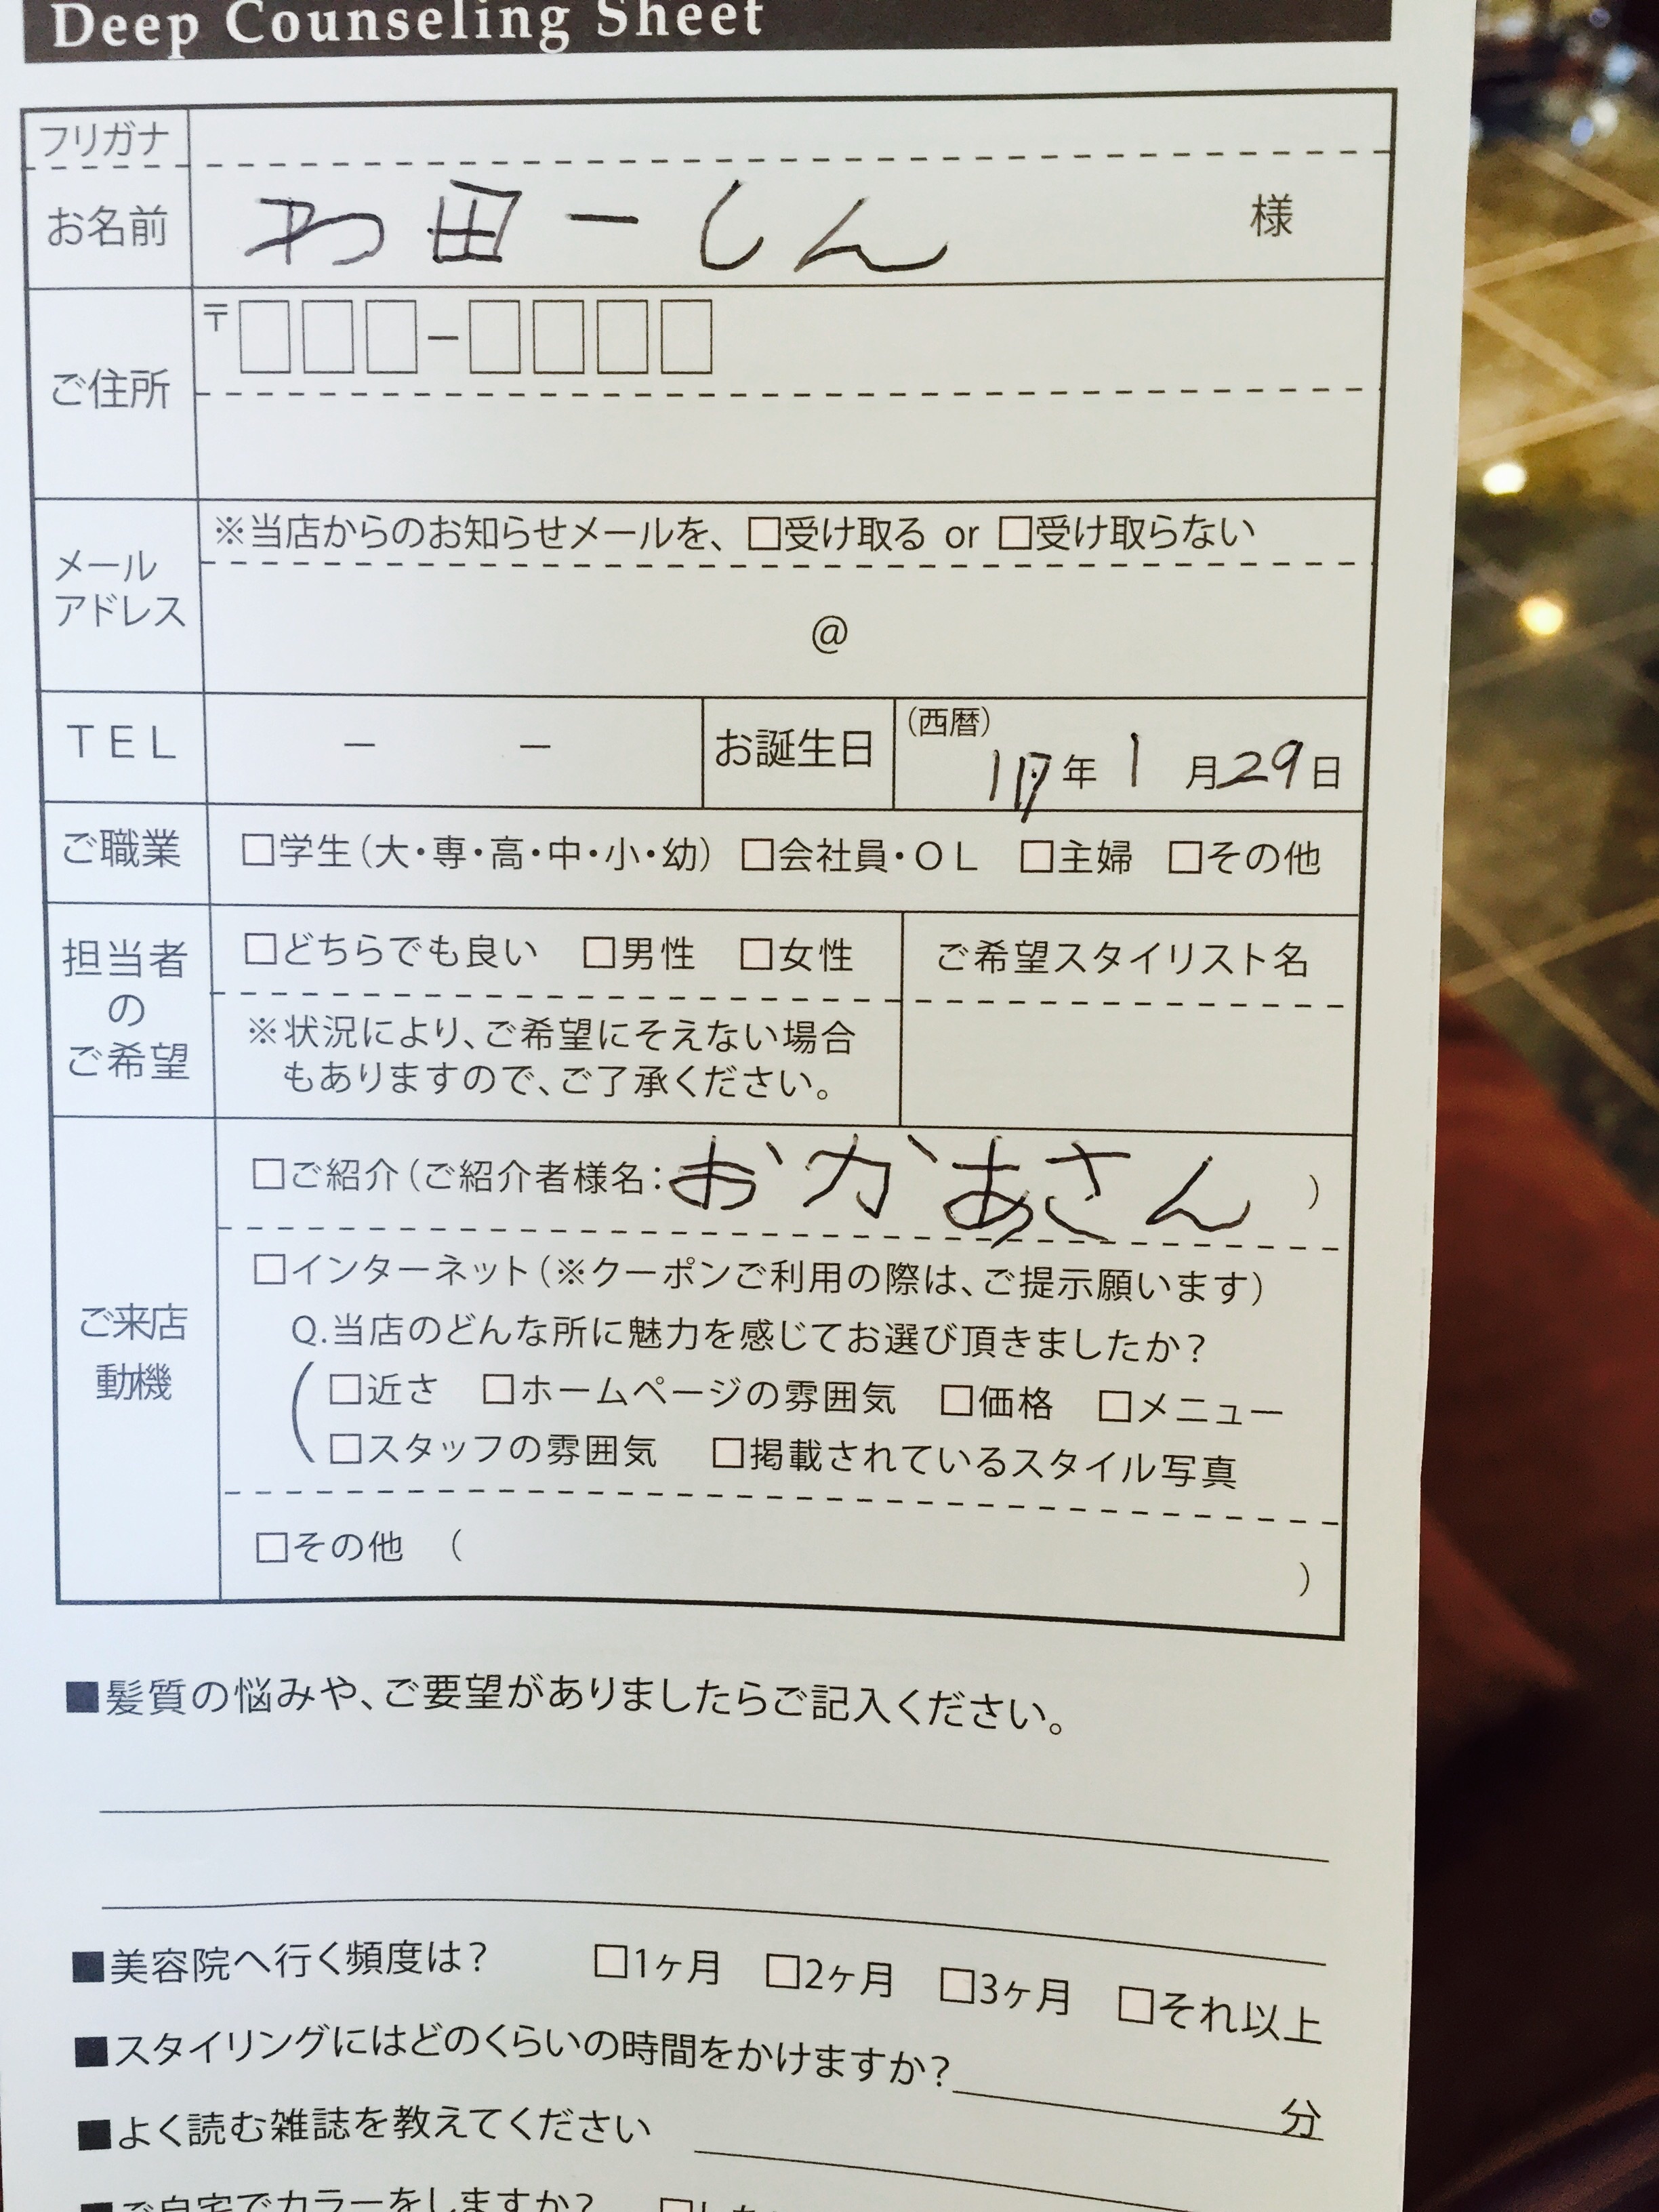 Deep Counseling Sheet
フリガナ
お名前 わ田一しん 様
〒 □□□-□□□□
ご住所
※当店からのお知らせメールを、□受け取る or □受け取らない
メール
アドレス
@
TEL － － お誕生日 (西暦) 年 1 月 29 日
ご職業 □学生(大・専・高・中・小・幼) □会社員・OL □主婦 □その他
担当者
の
ご希望
□どちらでも良い □男性 □女性
※状況により、ご希望にそえない場合
もありますので、ご了承ください。
ご希望スタイリスト名
ご来店
動機
□ご紹介(ご紹介者様名:おかあさん )
□インターネット(※クーポンご利用の際は、ご提示願います)
Q.当店のどんな所に魅力を感じてお選び頂きましたか?
(□近さ □ホームページの雰囲気 □価格 □メニュー
□スタッフの雰囲気 □掲載されているスタイル写真
□その他 ( )
■髪質の悩みや、ご要望がありましたらご記入ください。
■美容院へ行く頻度は? □1ヶ月 □2ヶ月 □3ヶ月 □それ以上
■スタイリングにはどのくらいの時間をかけますか? 分
■よく読む雑誌を教えてください
■ご自宅でカラーをしますか?